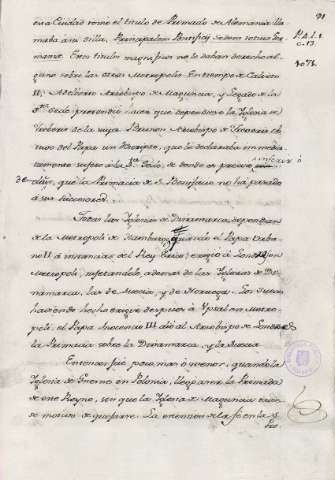 91
esta Ciudad tomó el titulo de Primado de Alemania lla-
mada ási silla, Principalem Pontificij Sedem totius Ger-
maniæ. Estos titulos magnificos no le daban derecho al-
guno sobre las otras Metropolis. En tiempo de Calixto
II, Adelberto Arzobispo de Maguncia, y Legado de la
Sta. Sede pretendió hacer que dependiese la Iglesia de
Treberis de la suya. Brunon Arzobispo de Treveris ob-
tuvo del Papa un Rescripto, que le declaraba inmedia-
tamente sujeto à la Sta. Sede, de donde se puede
que la Primacia de S. Bonifacio no ha pasado
á sus succesores.
Todas las Iglesias de Dinamarca, dependian
de la Metropoli de Hamburgo quando el Papa Urba-
no II á instancias del Rey Erico, erigió a London en
Metropoli, sujetandole, ademas de las Iglesias de Di-
namarca, las de Suecia, y de Noruega. Los Suecos
haviendo hecho erigir despues á Upsal en Metro-
poli, el Papa Inocencio III dió al Arzobispo de London
la Primacia sobre la Dinamarca, y la Suecia
Entonces fué poco mas ó menos, quando la
Iglesia de Gnesno en Polonia, llegó a ser la Primada
de este Reyno, sin que la Iglesia de Maguncia tubie-
se motivo de quejarse. La extension de la fe en la